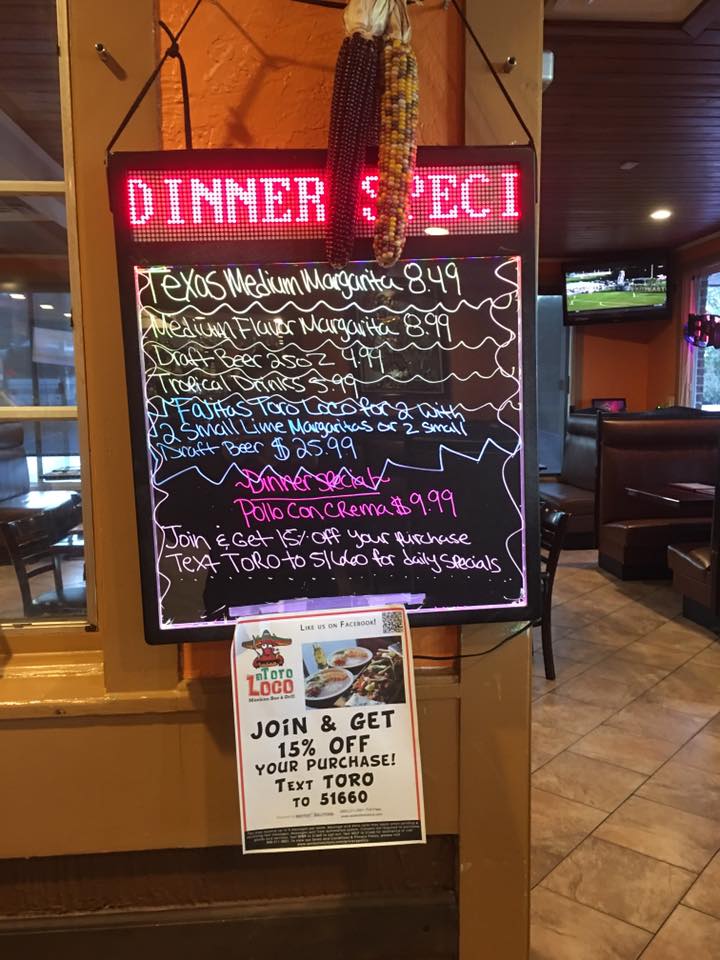 DINNER SPECI
Texas Medium Margarita 8.49
Medium Flavor Margarita 8.99
Draft Beer 25oz 4.99
Tropical Drinks 5.99
Fajitas Toro Loco for 2 with
2 Small Lime Margaritas or 2 small
Draft Beer $25.99
Dinner special
Pollo Con Crema $9.99
Join & Get 15% off Your purchase
Text TORO to 51660 for daily specials
LIKE US ON FACEBOOK!
El Toro
Loco
Mexican Bar & Grill
JOIN & GET
15% OFF
YOUR PURCHASE!
TEXT TORO
TO 51660